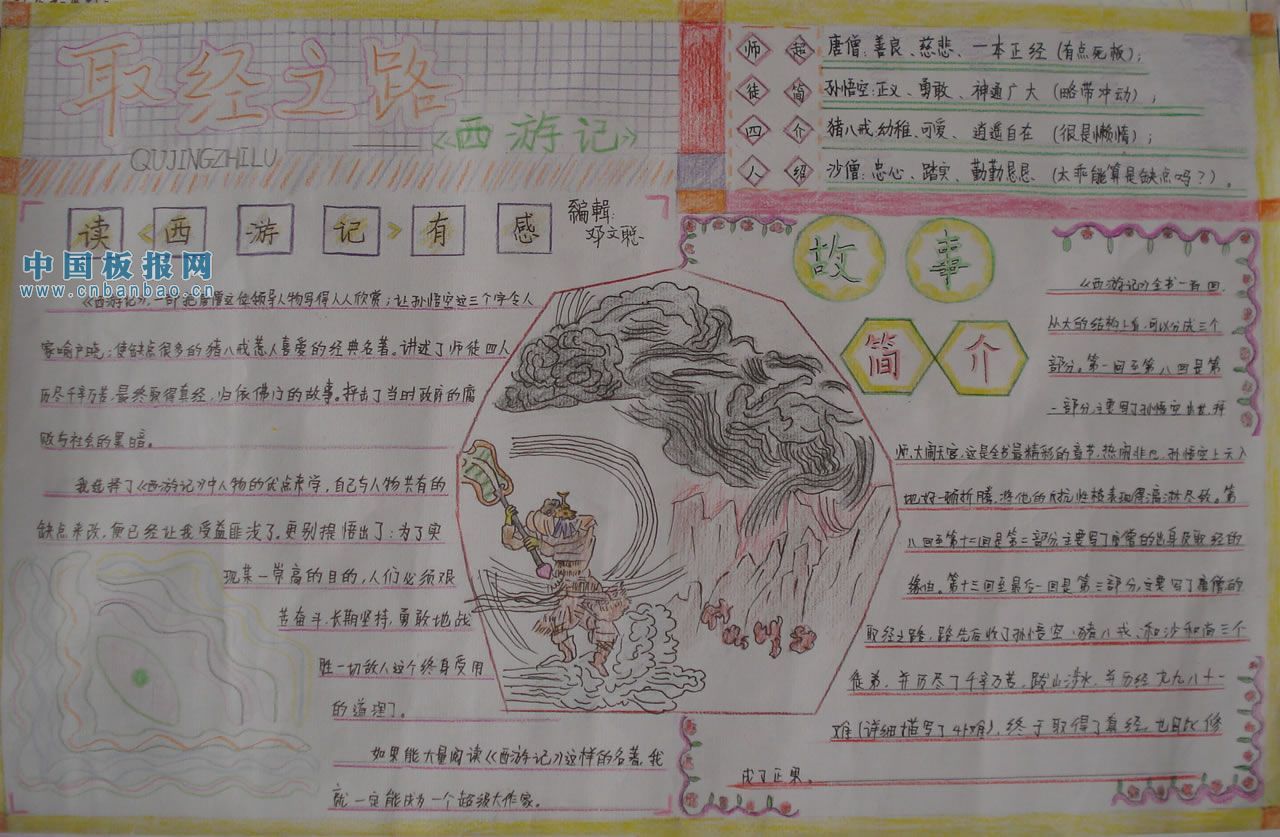 取经之路
《西游记》
QUJINGZHILU
师徒四人
超简介绍
唐僧:善良、慈悲、一本正经(有点死板);
孙悟空:正义、勇敢、神通广大(略带冲动);
猪八戒:幼稚、可爱、逍遥自在(很是懒惰);
沙僧:忠心、踏实、勤勤恳恳(太乖能算是缺点吗?)。
读<西游记>有感
编辑:
邓文聪
中国板报网
www.cnbanbao.cn
《西游记》,一部把唐僧这位领导人物写得人人欣赏;让孙悟空这三个字令人
家喻户晓;使缺点很多的猪八戒惹人喜爱的经典名著。讲述了师徒四人
历尽千辛万苦,最终取得真经,归依佛门的故事。抨击了当时政府的腐
败与社会的黑暗。
我选择了《西游记》中人物的优点来学,自己与人物共有的
缺点来改,便已经让我受益匪浅了。更别提悟出了:为了实
现某一崇高的目的,人们必须艰
苦奋斗,长期坚持,勇敢地战
胜一切敌人这个终身受用
的道理了。
如果能大量阅读《西游记》这样的名著,我
就一定能成为一个超级大作家。
故事
简介
《西游记》全书一百回,
从大的结构上看,可以分成三个
部分。第一回至第八回是第
一部分,主要写了孙悟空出世、拜
师、大闹天宫,这是全书最精彩的章节,热闹非凡,孙悟空上天入
地好一顿折腾,将他的反抗性格表现得淋漓尽致。第
八回至第十二回是第二部分,主要写了唐僧的出身及取经的
缘由。第十三回至最后一回是第三部分,主要写了唐僧的
取经之路,路先后收了孙悟空、猪八戒、和沙和尚三个
徒弟,并历尽了千辛万苦,跋山涉水,并历经九九八十一
难(详细描写了41难),终于取得了真经,也因此修
成了正果。